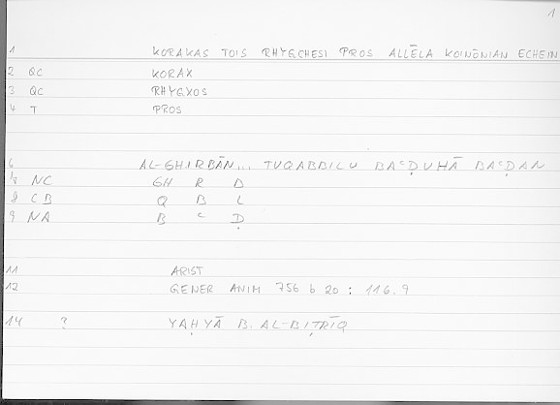 1
1 KORAKAS TOIS RHYGCHESI PROS ALLĒLA KOINŌNIAN ECHEIN
2 QC KORAX
3 QC RHYGXOS
4 T PROS
6 AL-GHIRBĀN... TUQABBILU BAʿḌUHĀ BAʿḌAN
NC GH R B
8 CB Q B L
9 NA B ʿ Ḍ
11 ARIST
12 GENER ANIM 756 b 20 : 116.9
14 ? YAḤYĀ B. AL-BIṬRĪQ